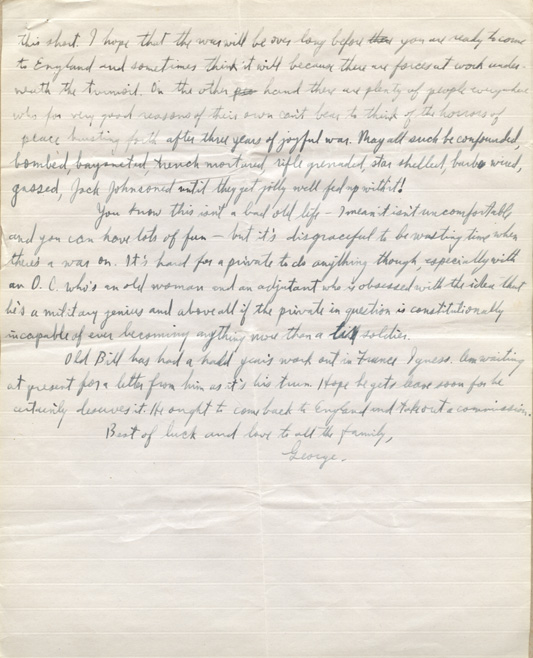 this short. I hope that the war will be over long before you are ready to come
to England and sometimes think it will because there are forces at work under-
neath the turmoil. On the other hand there are plenty of people everywhere
who for very good reasons of their own can't bear to think of the horrors of
peace bursting forth after three years of joyful war. May all such be confounded,
bombed, bayoneted, trench mortared, rifle grenaded, star shelled, barb wired,
gassed, Jack Johnsoned until they get jolly well fed up with it!
You know this isn't a bad old life – I mean it isn't uncomfortable
and you can have lots of fun – but it's disgraceful to be wasting time when
there's a war on. It's hard for a private to do anything though, especially with
an O.C. who's an old woman and an adjutant who is obsessed with the idea that
he's a military genius and above all if the private in question is constitutionally
incapable of ever becoming anything more than a soldier.
Old Bill has had a hard year's work out in France I guess. Am waiting
at present for a letter from him as it's his turn. Hope he gets leave soon for he
certainly deserves it. He ought to come back to England and take out a commission.
Best of luck and love to all the family,
George.